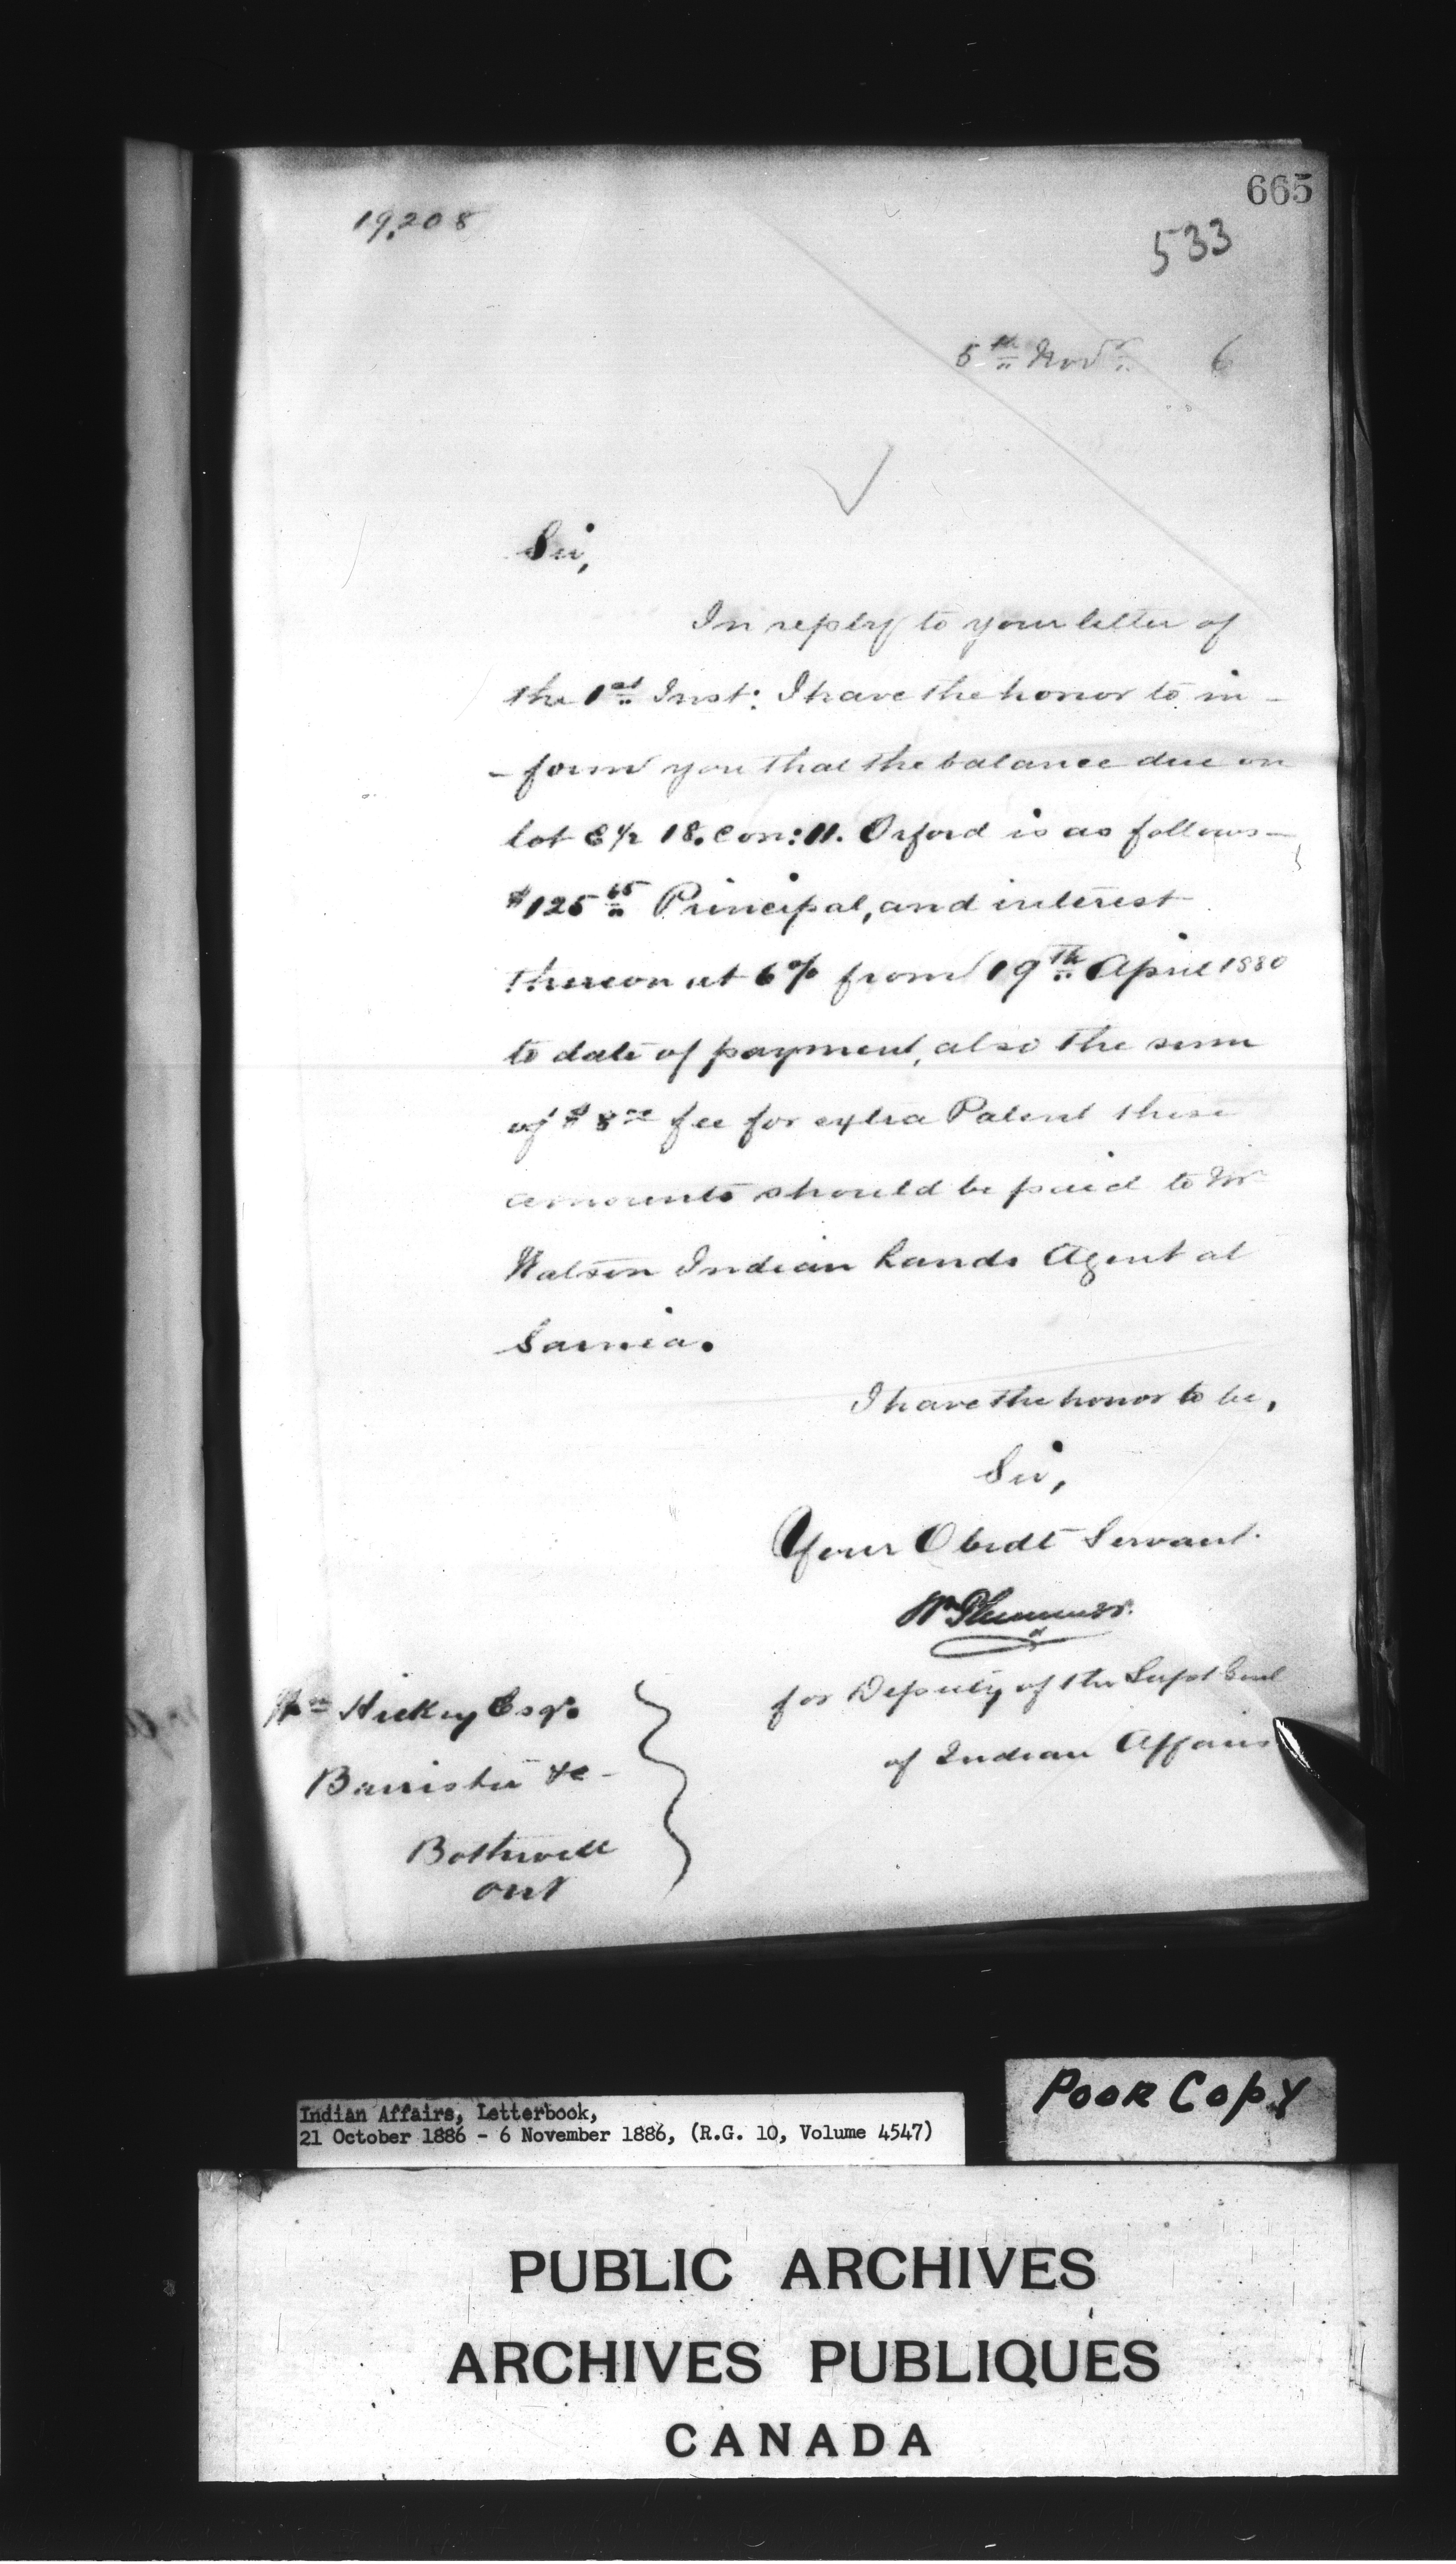 665
19,208
533
5th Novr 6
Sir,
In reply to your letter of
the 1st Inst: I have the honor to in-
-form you that the balance due on
lot E 1/2 18. Con: 11. Orford is as follows-
$125 65 Principal, and interest
thereon at 6% from 19th April 1880
to date of payment, also the sum
of $8 fee for extra Patent these
amounts should be paid to Mr
Watson Indian Lands Agent at
Sarnia.
I have the honor to be,
Sir,
Your Obedt Servant.
Wm Plummer
for Deputy of the Supt Genl
of Indian Affairs
Wm Hickey Esqr.
Barrister &c-
Bothwell
Ont
Poor Copy
Indian Affairs, Letterbook,
21 October 1886 - 6 November 1886, (R.G. 10, Volume 4547)
PUBLIC ARCHIVES
ARCHIVES PUBLIQUES
CANADA